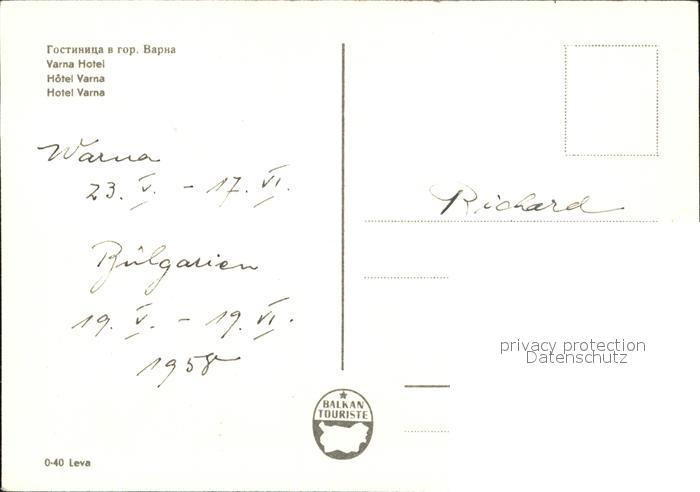 Гостиница в гор. Варна
Varna Hotel
Hôtel Varna
Hotel Varna
Warna
23. V. - 17. VI.
Bulgarien
19. V. - 19. VI.
1958
Richard
privacy protection
Datenschutz
BALKAN
TOURISTE
0-40 Leva